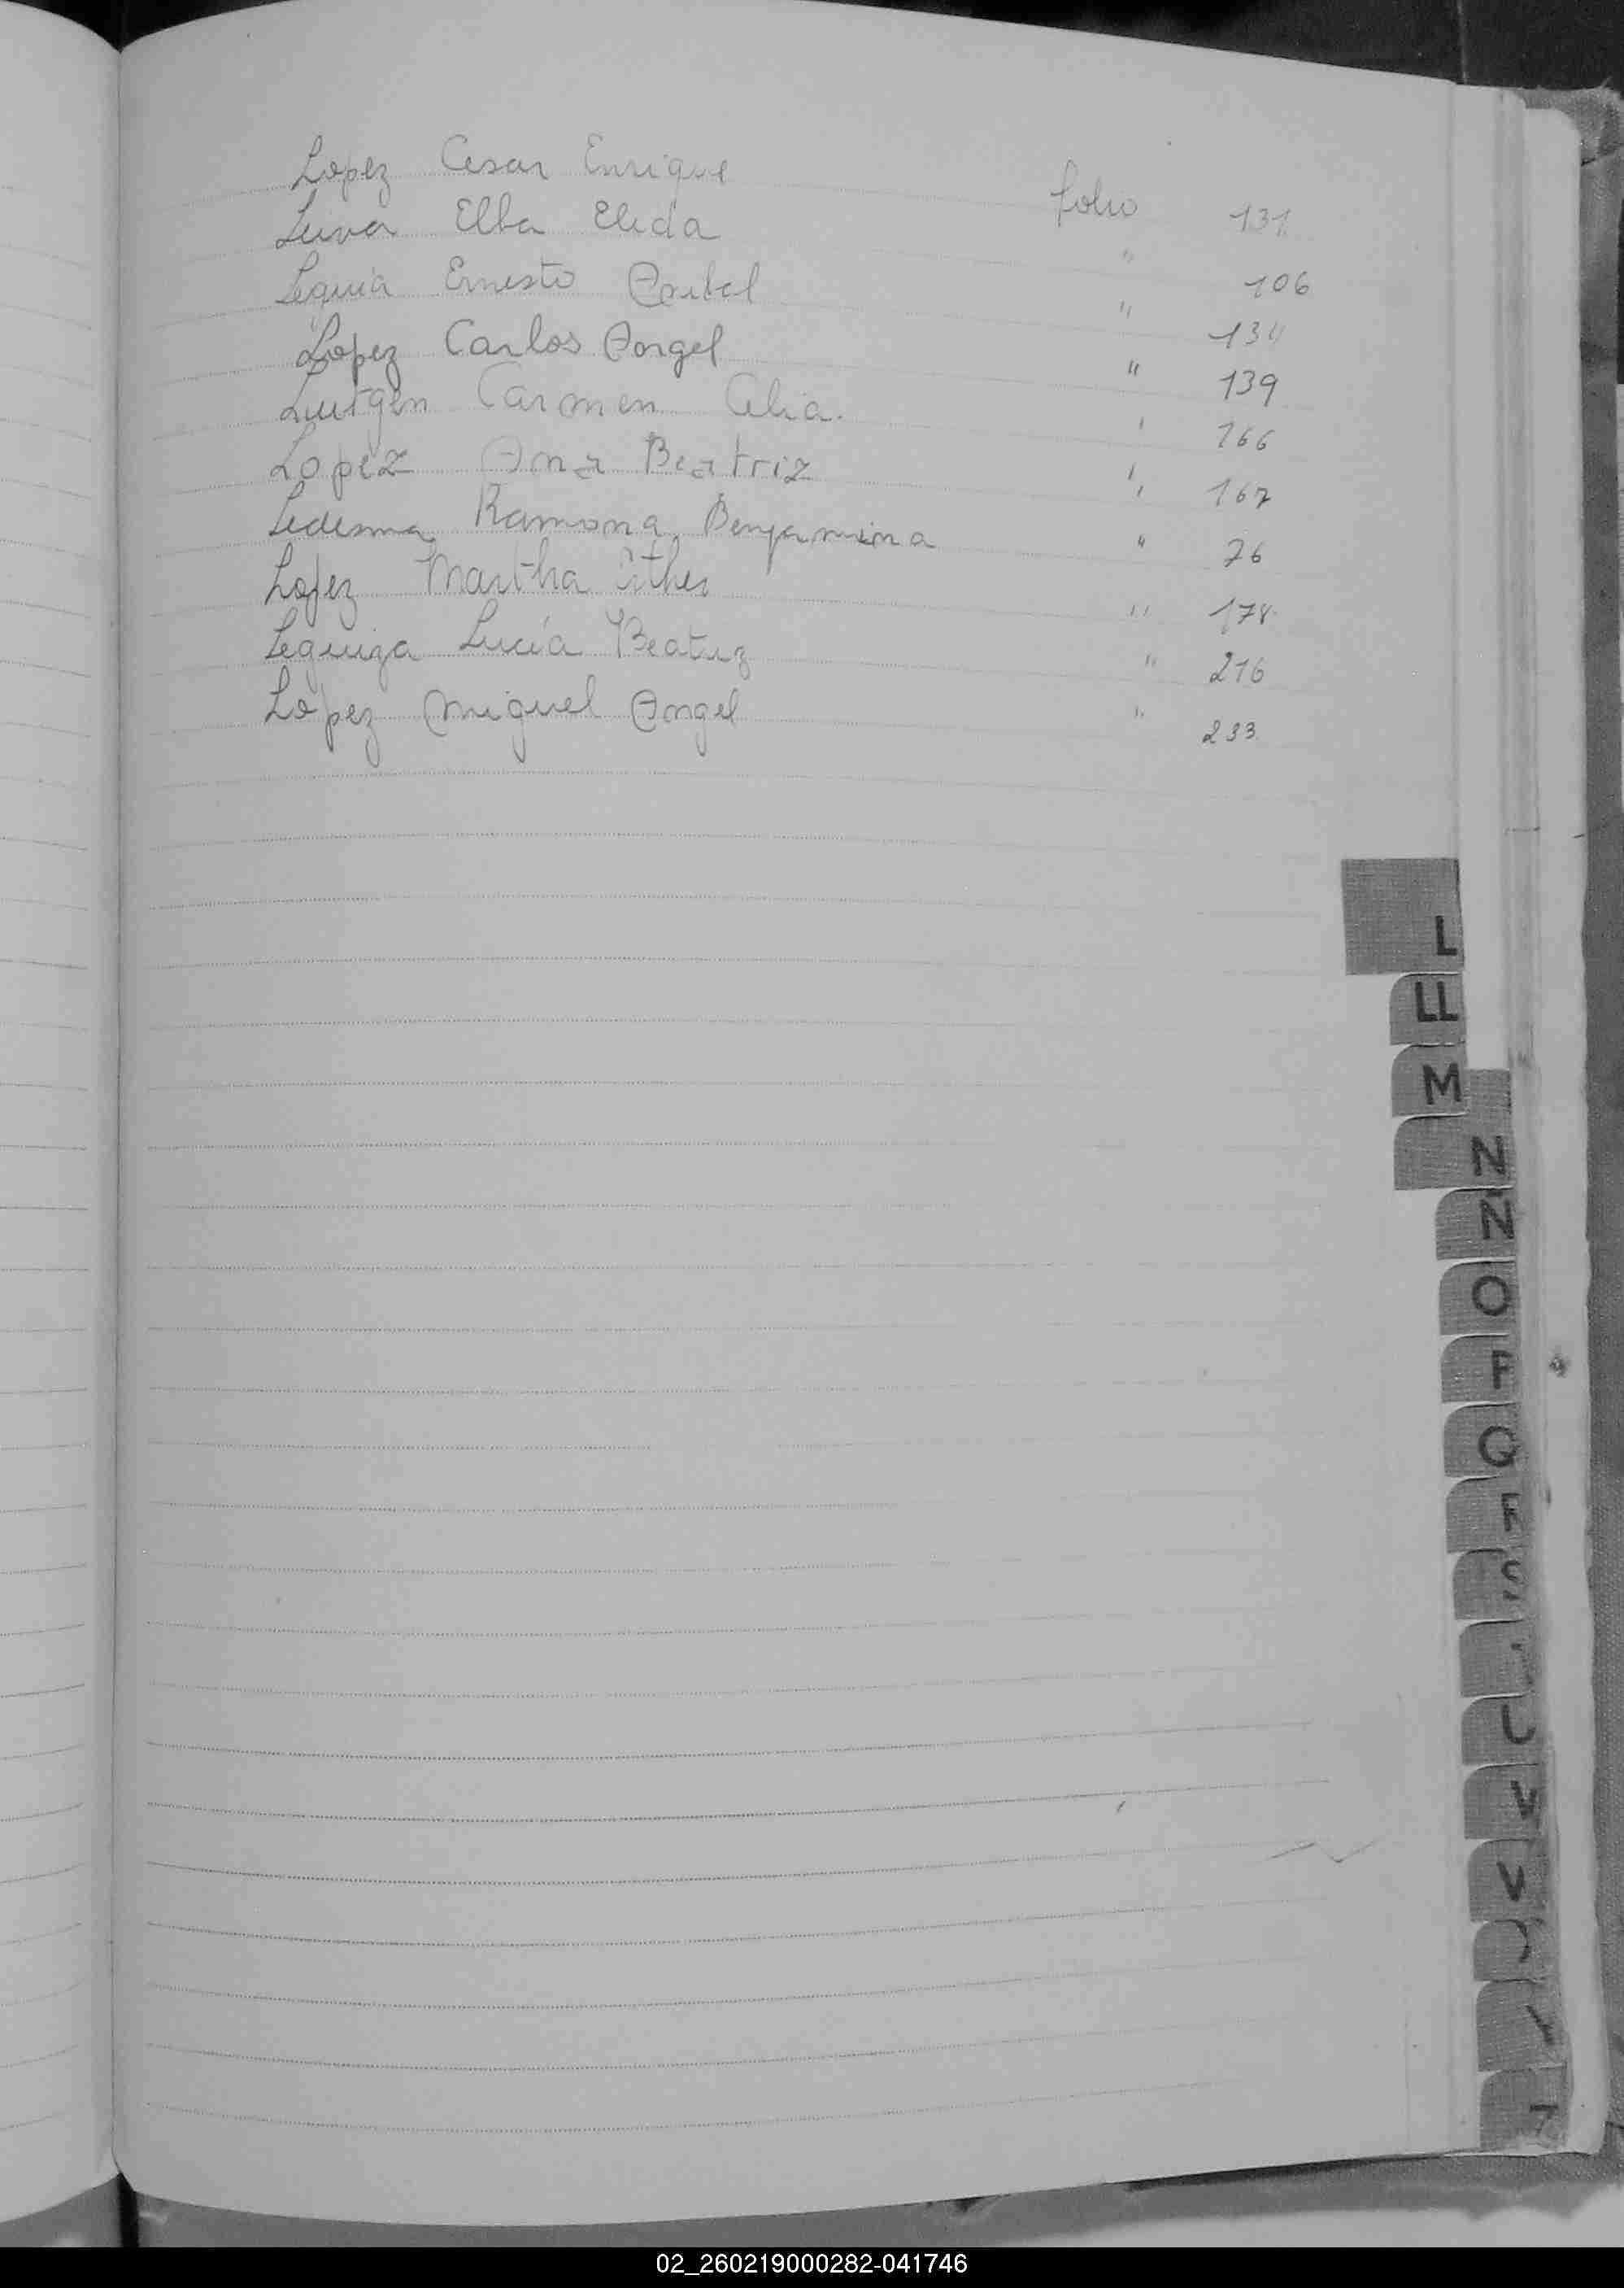 Lopez Cesar Enrique folio 131
Leiva Elba Elida " 106
Leguia Ernesto Anibal " 134
Lopez Carlos Angel " 139
Lutgen Carmen Celia. " 166
Lopez Ana Beatriz " 167
Ledesma Ramona Benjamina " 76
Lopez Martha Esther " 178
Leguiza Lucía Beatriz " 216
Lopez Miguel Angel " 233
L
LL
M
N
Ñ
O
P
Q
R
S
U
V
Z
02_260219000282-041746